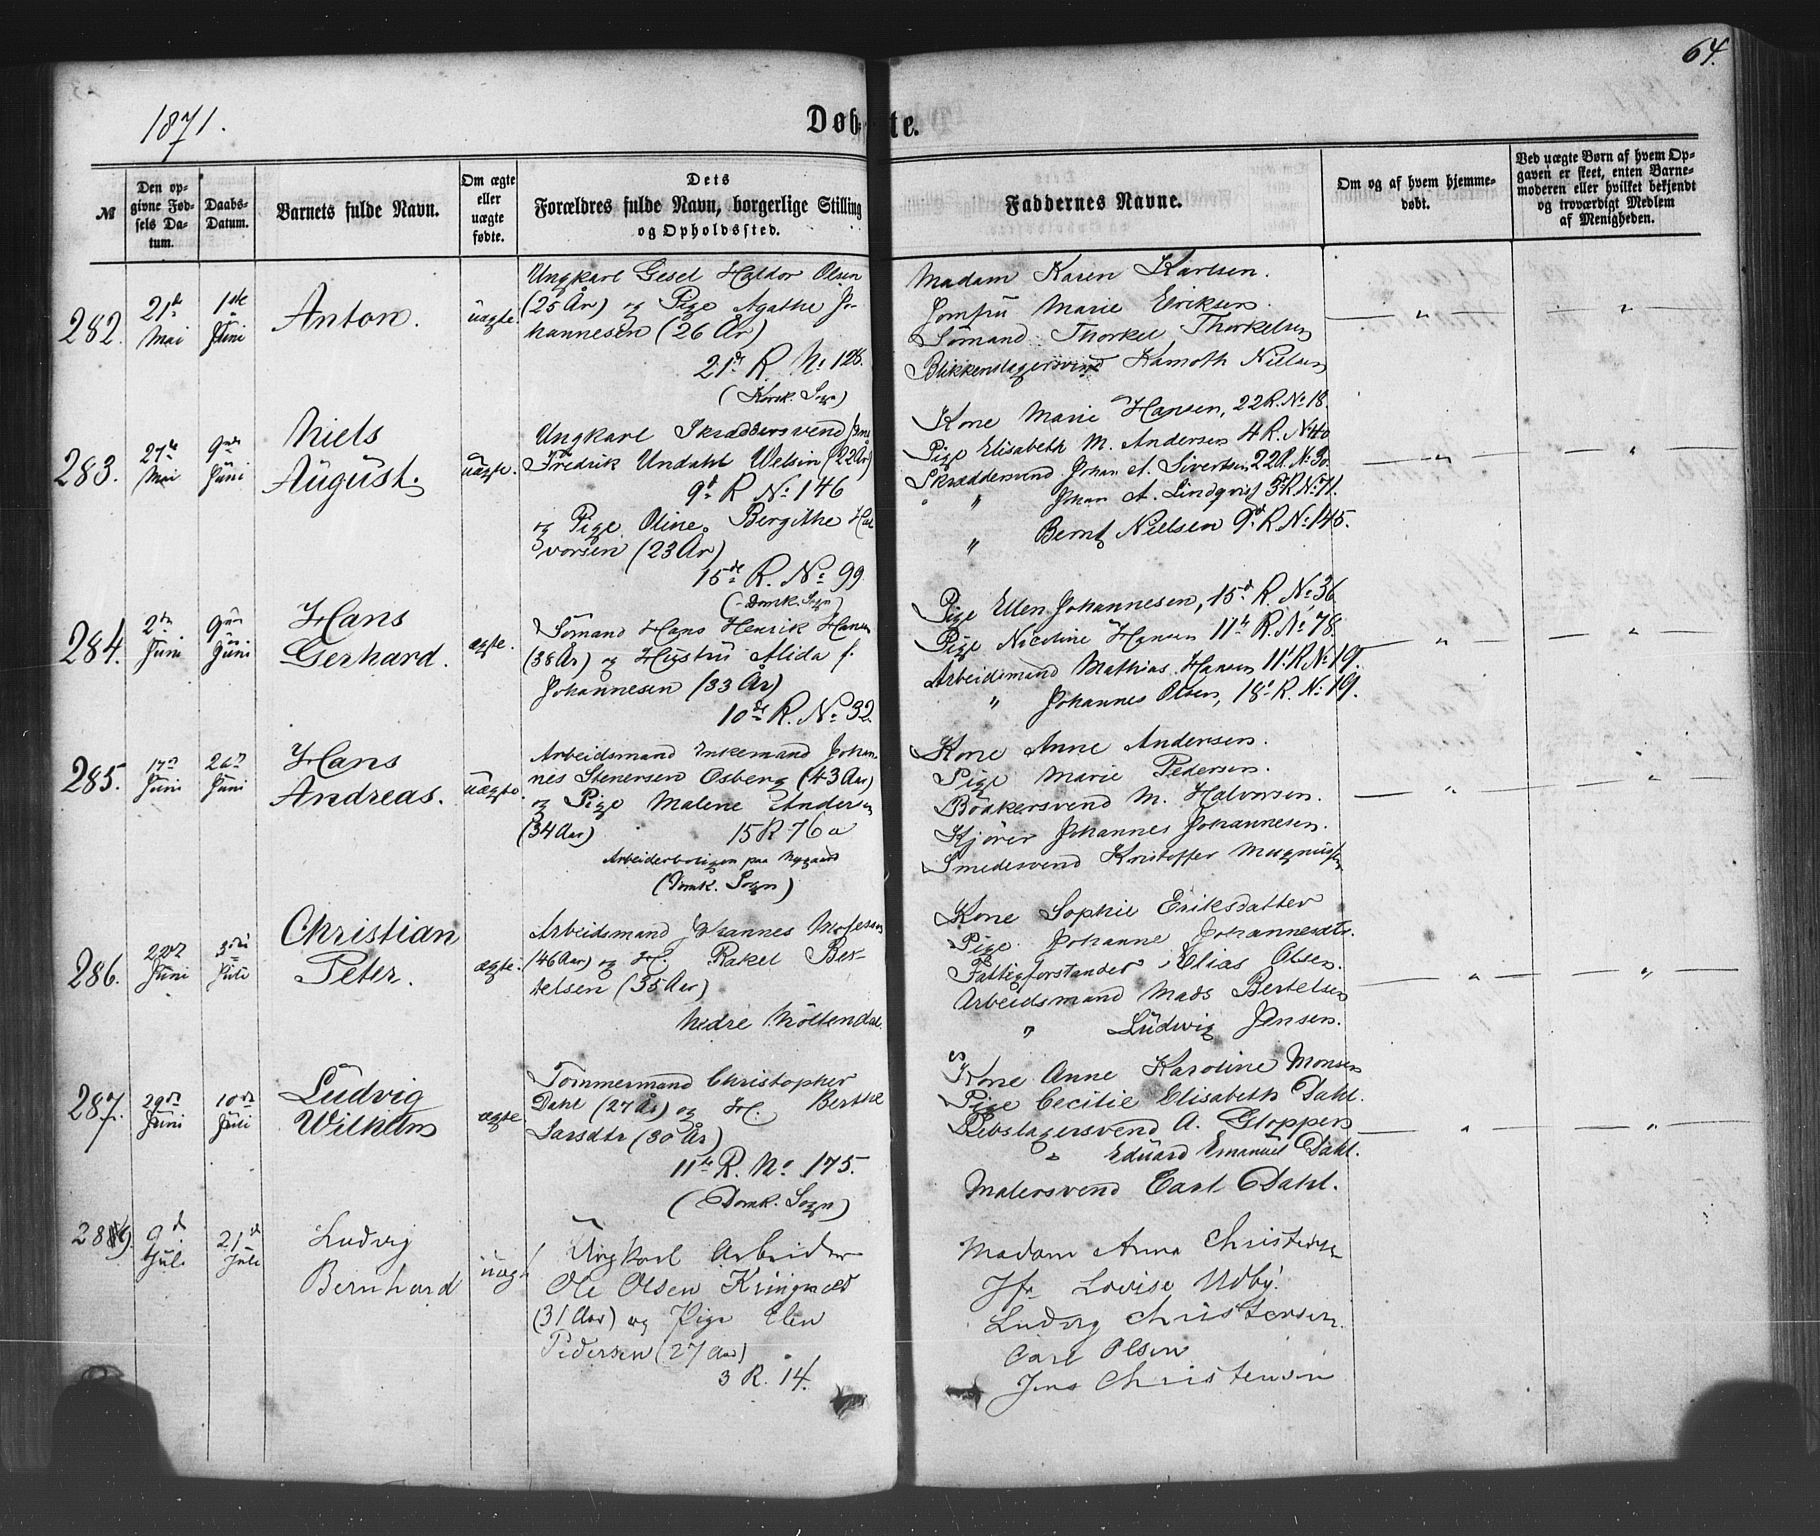 64.
1871.
Døbte.
№
Den op-
givne Fød-
sels Da-
tum.
Daabs-
Datum.
Barnets fulde Navn.
Om ægte
eller
uægte
fødte.
Dets
Forældres fulde Navn, borgerlige Stilling
og Opholdssted.
Faddernes Navne.
Om og af hvem hjemme-
døbt.
Ved uægte Børn af hvem Op-
gaven er skeet, enten Barne-
moderen eller hvilket bekjendt
og troværdigt Medlem
af Menigheden.
282.
21de
Mai
1ste
Juni
Anton.
uægte.
Ungkarl Gesel Haldor Olsen
(25 År) og Pige Agathe Jo-
hannesen (26 År)
21de R. No 128.
(Korsk. Sogn)
Madam Karen Karlsen.
Jomfru Marie Eriksen.
Sømand Thorkel Thorkelsen
Blikkenslagersvend Hamoth Nielsen
283.
27de
Mai
9nde
Juni
Niels
August.
uægte.
Ungkarl Skræddersvend Jens
Fredrik Undahl Welsin (22 År)
9de R No 146
og Pige Oline Bergithe Hal
vorsen (23 År)
15de R. No 99
(Domk. Sogn)
Kone Marie Hansen, 22 R. No 18.
Pige Elisabeth M. Andersen 4 R. No 40
Skræddersvend Johan A. Sivertsen 22 R. No 30.
" Johan A. Lindqvist 3 R. No 71.
" Bernt Nielsen 9de R. No 145.
284.
2den
Juni
9nde
Juni
Hans
Gerhard.
ægte.
Sømand Hans Henrik Hansen
(38 År) og Hustru Alida f.
Johannesen (33 År)
10de R. No 32
Pige Ellen Johannesen, 15d R. No 36
Pige Nicoline Hansen 11te R. No 78.
Arbeidsmand Mathias Hansen 11t R. No 19.
" Johannes Olsen, 18t R. No 19.
285.
17de
Juni
26de
Juni
Hans
Andreas.
uægte
Arbeidsmand Enkemand Johan
nes Stenersen Osberg (43 Aar)
og Pige Malene Andersen
(34 Aar) 15 R 76 a
Arbeiderboligen paa Nygaard
(Domk. Sogn)
Kone Anne Andersen.
Pige Marie Pedersen.
Bødkersvend M. Halvorsen.
Kjører Johannes Johannesen.
Smedesvend Kristoffer Magnussen
286.
22de
Juni
3die
Juli
Christian
Peter.
ægte.
Arbeidsmand Johannes
(46 Aar) og H. Rakel Ber-
telsen (35 Aar)
Nedre Møllendal.
Kone Sophie Eriksdatter
Pige Johanne Johannesdtr.
Fattigforstander Elias Olsen.
Arbeidsmand Mads Bertelsen
" Ludwig Jensen.
287.
29de
Juni
10de
Juli
Ludvig
Wilhelm
ægte
Tømmermand Christopher
Dahl (27 År) og H. Berthe
Larsdtr (30 År)
11te R. No 175.
(Domk. Sogn)
Kone Anne Karoline Monsen
Pige Cecilie Elisabeth Dahl.
Rebslagersvend A. Gloppen
" Eduard Emanuel Dahl.
Malersvend Carl Dahl.
289.
9d
Juli
21d
Juli
Ludvig
Bernhard
uægt
Ungkarl Arbeider
Ole Olsen Kringseld
(31 Aar) og Pige Elen
Pedersen (27 Aar)
3 R. 14.
Madam Anna Christensen
Jfr Lovise Udby.
Ludvig Christensen.
Carl Olsen
Jens Christensen